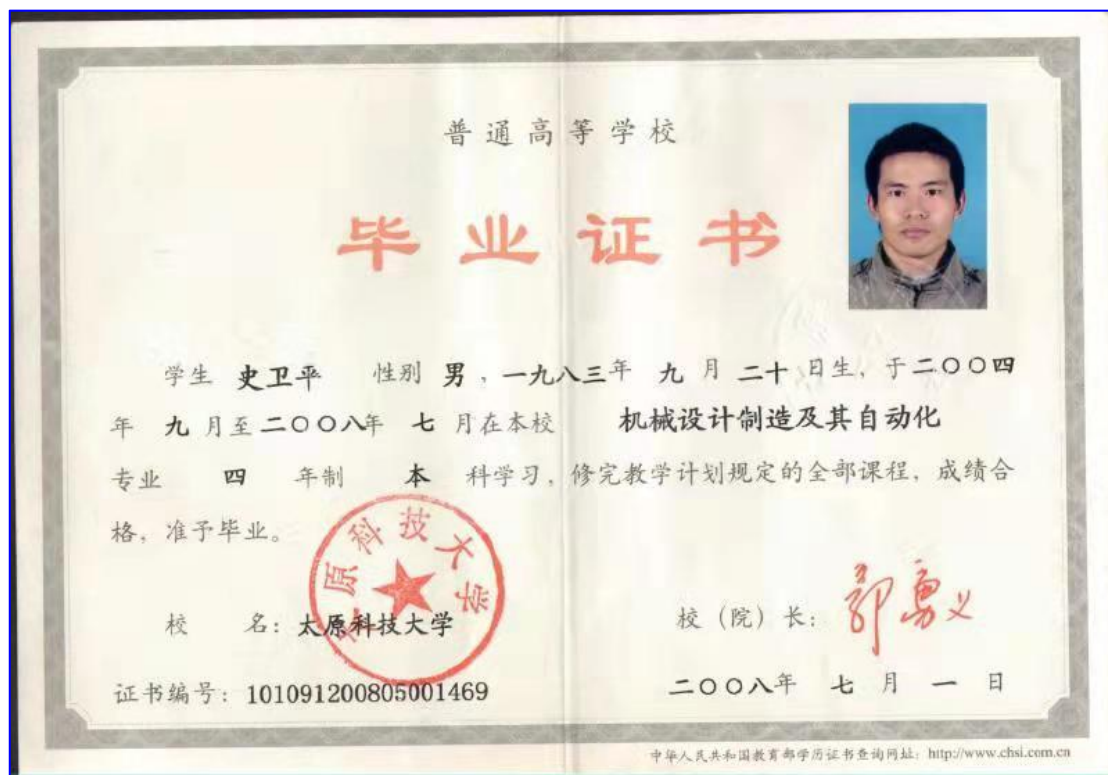 普通高等学校
毕业证书
学生 史卫平 性别 男，一九八三年 九 月 二十 日生，于二〇〇四
年 九 月至二〇〇八年 七 月在本校 机械设计制造及其自动化
专业 四 年制 本 科学习，修完教学计划规定的全部课程，成绩合
格，准予毕业。
太原科技大学
校 名：太原科技大学
校（院）长：郭勇义
证书编号：101091200805001469
二〇〇八年 七 月 一 日
中华人民共和国教育部学历证书查询网址：http://www.chsi.com.cn